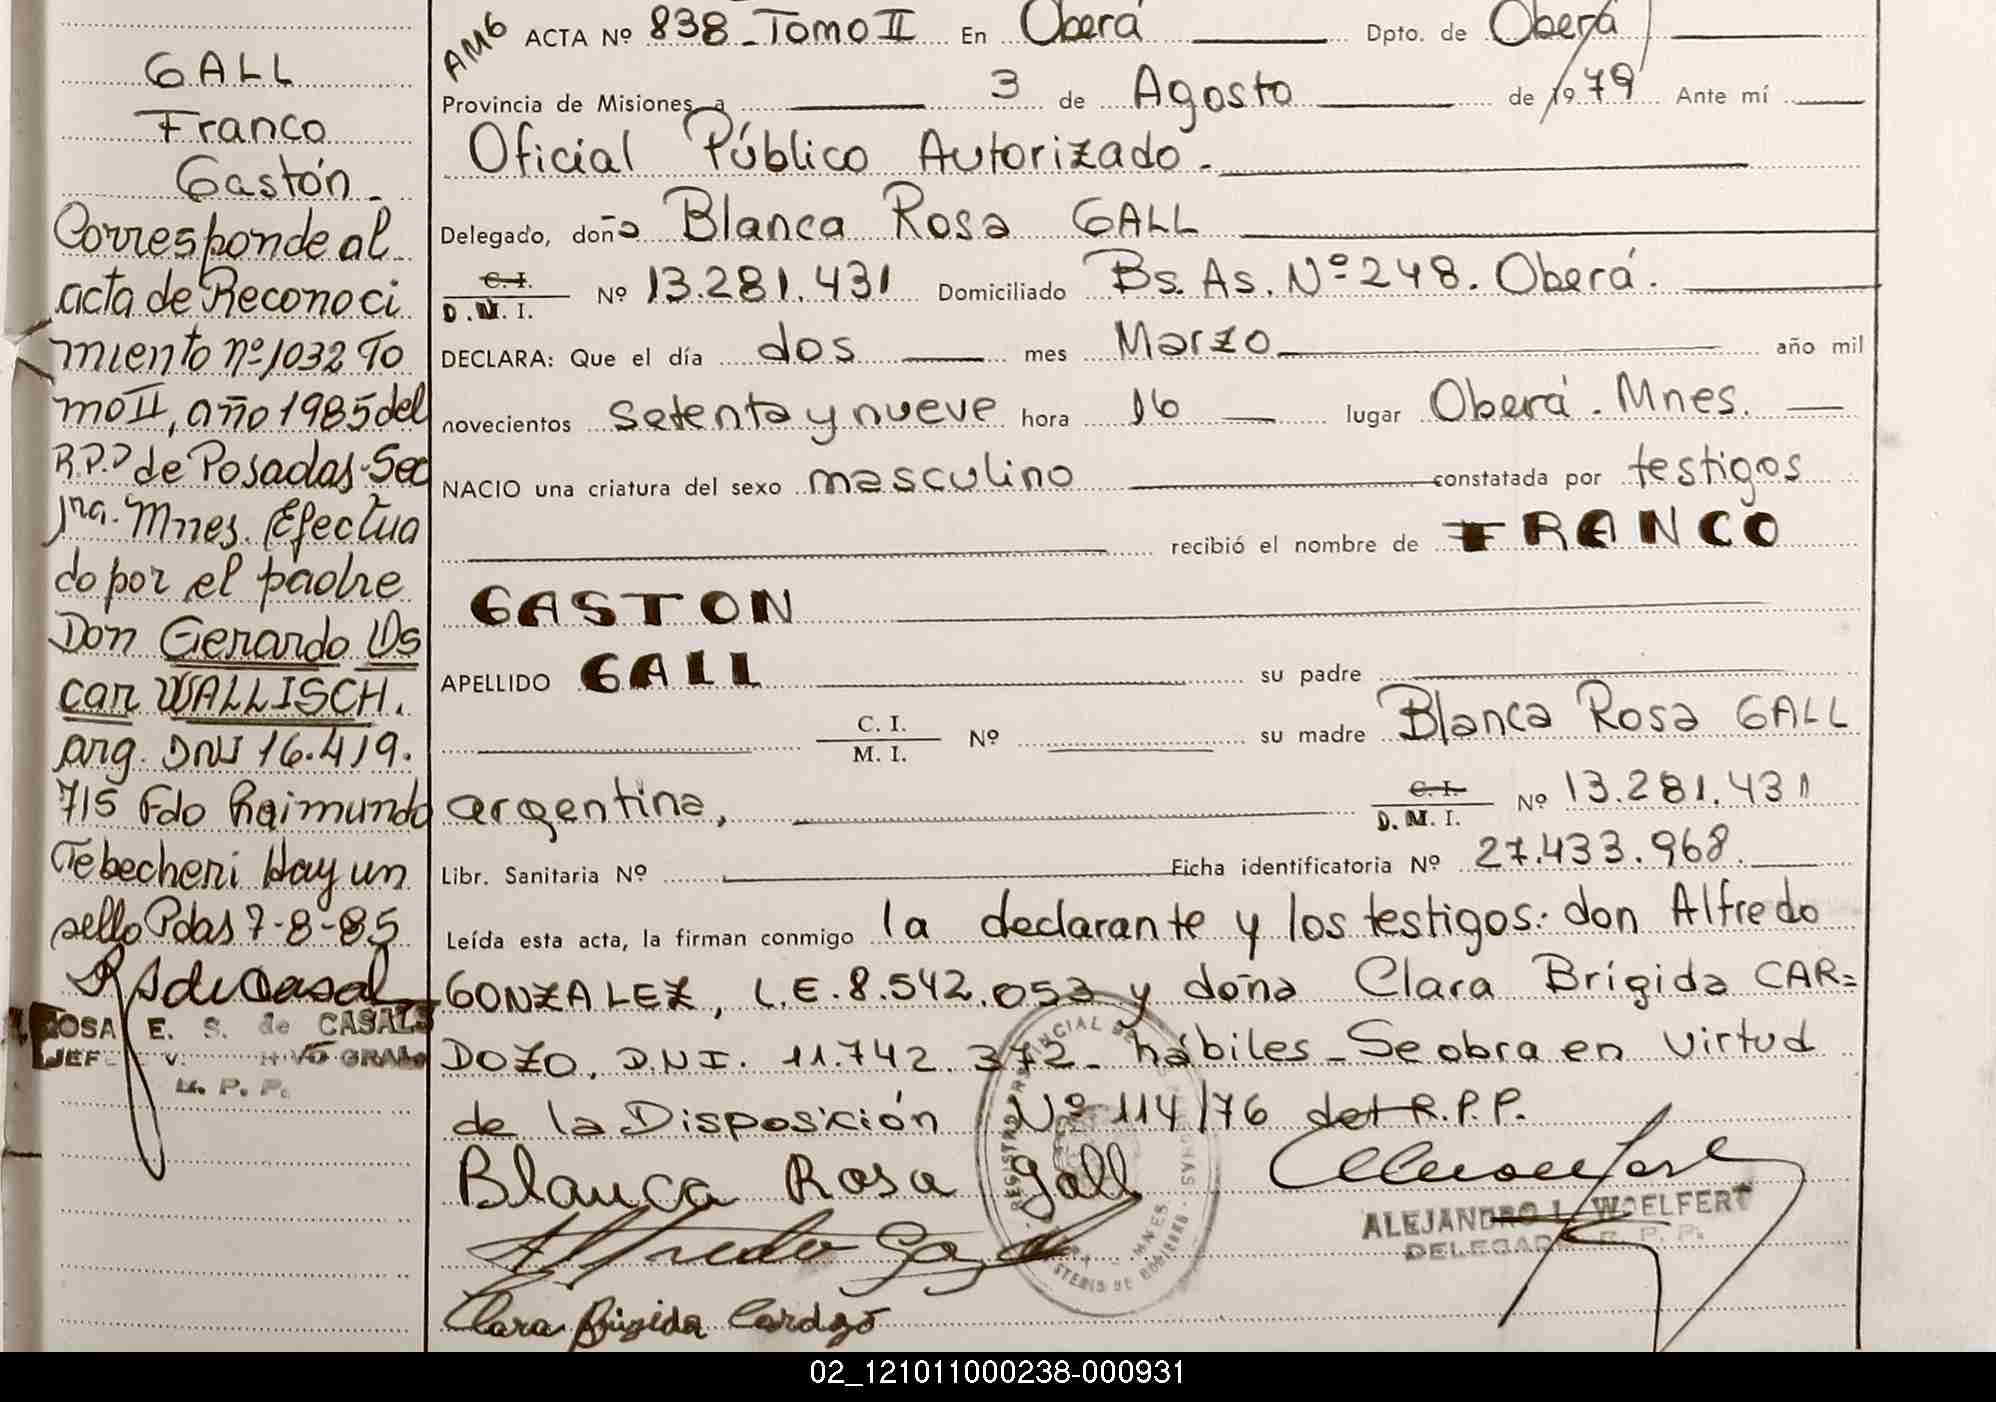 GALL
Franco
Gastón.
Corresponde al
acta de Reconoci
miento nº 1032 To
mo II, año 1985 del
R.P.P de Posadas-Sec
1ra. Mnes. Efectua
do por el padre
Don Gerardo Os
car WALLISCH.
arg. DNI 16.419.
715 Fdo Raimundo
Tebecheri Hay un
sello Pdas 7-8-85
ROSA E. S. de CASALS
R. P. P.
AMG ACTA Nº 838 - Tomo II En Oberá Dpto. de Oberá
Provincia de Misiones, a 3 de Agosto de 1979 Ante mí
Oficial Público Autorizado.
Delegado, doña Blanca Rosa GALL
C.I. D.N.I. Nº 13.281.431 Domiciliado Bs. As. Nº 248. Oberá.
DECLARA: Que el día dos mes Marzo año mil
novecientos setenta y nueve hora 16 lugar Oberá. Mnes.
NACIO una criatura del sexo masculino constatada por testigos
recibió el nombre de FRANCO
GASTON
APELLIDO GALL su padre
C. I. M. I. Nº su madre Blanca Rosa GALL
argentina, C.I. D.N.I. Nº 13.281.431
Libr. Sanitaria Nº Ficha identificatoria Nº 27.433.968.
Leída esta acta, la firman conmigo la declarante y los testigos: don Alfredo
GONZALEZ, L.E. 8.542.053 y doña Clara Brígida CAR=
DOZO, D.N.I. 11.742.372- hábiles - Se obra en virtud
de la Disposición Nº 114/76 del R.P.P.
Blanca Rosa Gall
ALEJANDRO L. WOELFERT
DELEGADO R. P. P.
Alfredo
Clara Brigida Cardozo
02_121011000238-000931